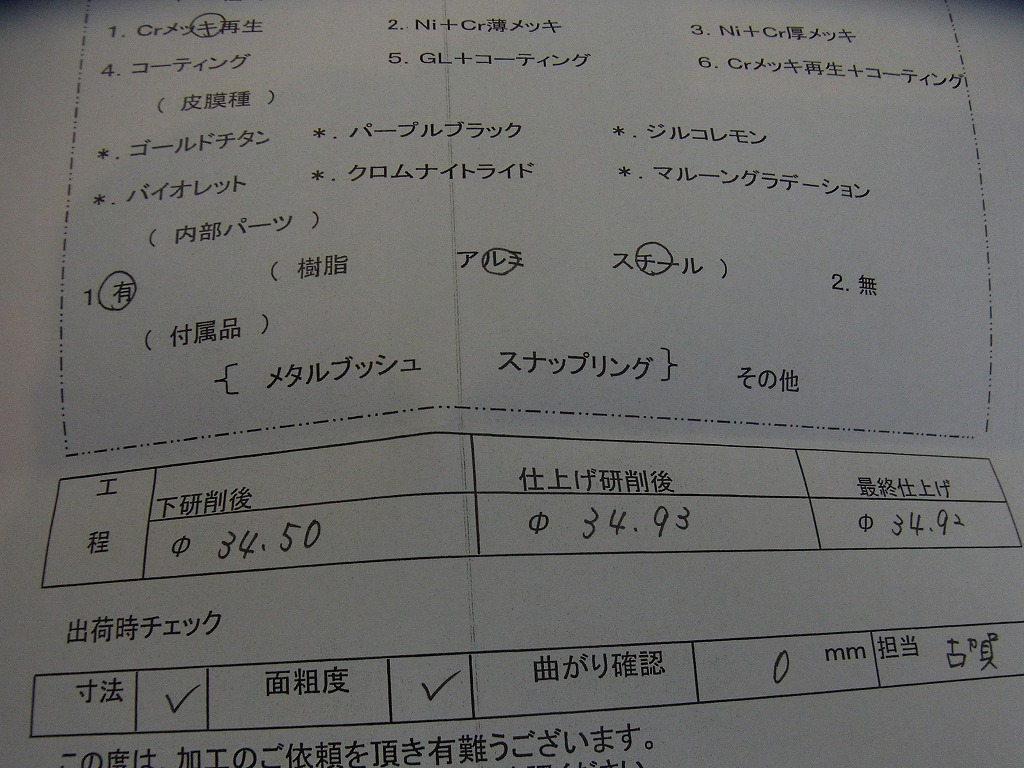 1. Crメッキ再生 2. Ni＋Cr薄メッキ 3. Ni＋Cr厚メッキ
4. コーティング 5. GL＋コーティング 6. Crメッキ再生＋コーティング
（ 皮膜種 ）
＊. ゴールドチタン ＊. パープルブラック ＊. ジルコレモン
＊. バイオレット ＊. クロムナイトライド ＊. マルーングラデーション
（ 内部パーツ ）
1. 有 （ 樹脂 アルミ スチール ） 2. 無
（ 付属品 ）
｛ メタルブッシュ スナップリング ｝ その他
工程 下研削後 仕上げ研削後 最終仕上げ
Φ 34.50 Φ 34.93 Φ 34.92
出荷時チェック
寸法 ✓ 面粗度 ✓ 曲がり確認 0 mm 担当 古賀
この度は、加工のご依頼を頂き有難うございます。